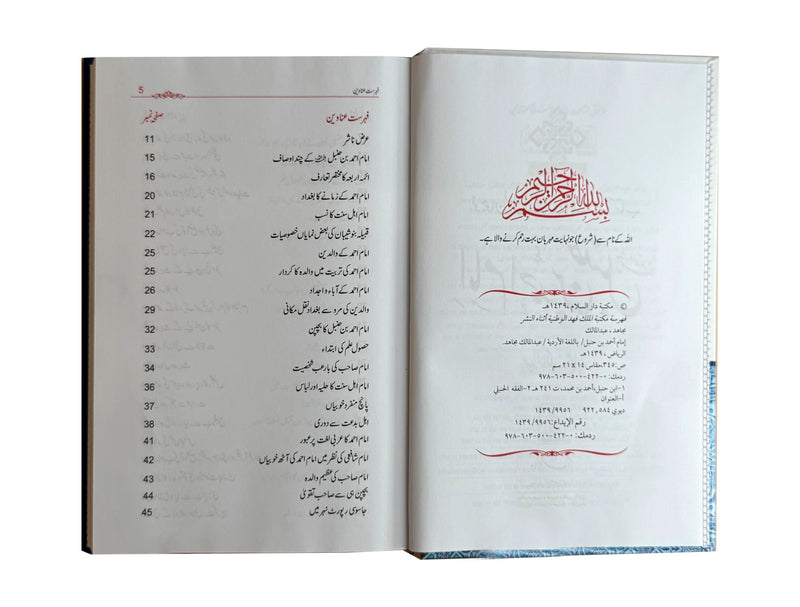 بسم الله الرحمن الرحيم
اللہ کے نام سے (شروع) جو نہایت مہربان بہت رحم کرنے والا ہے۔
© مكتبة دار السلام، ١٤٣٩هـ
فهرسة مكتبة الملك فهد الوطنية أثناء النشر
مجاهد، عبدالمالك
إمام أحمد بن حنبل/ باللغة الأردية / عبدالمالك مجاهد.
الرياض، ١٤٣٩هـ
ص: ٣٤٥ مقاس ١٤ x ٢١ سم
ردمك: ٠-٤٢٢-٥٠٠-٦٠٣-٩٧٨
١- ابن حنبل، أحمد بن محمد، ت ٢٤١ هـ ٢- الفقه الحنبلي
أ- العنوان
ديوي ٩٢٢,٥٨٤ ١٤٣٩/٩٩٥٦
رقم الإيداع: ١٤٣٩/٩٩٥٦
ردمك: ٠-٤٢٢-٥٠٠-٦٠٣-٩٧٨
فہرست عناوین 5
فہرست عناوین صفحہ نمبر
عرض ناشر 11
امام احمد بن حنبل رحمہ اللہ کے چند اوصاف 15
ائمہ اربعہ کا مختصر تعارف 16
امام احمد کے زمانے کا بغداد 20
امام اہل سنت کا نسب 21
قبیلہ بنو شیبان کی بعض نمایاں خصوصیات 22
امام احمد کے والدین 25
امام احمد کی تربیت میں والدہ کا کردار 25
امام احمد کے آباء و اجداد 26
والدین کی مرو سے بغداد نقل مکانی 29
امام احمد بن حنبل کا بچپن 32
حصول علم کی ابتداء 33
امام صاحب کی بارعب شخصیت 34
امام اہل سنت کا حلیہ اور لباس 36
پانچ منفرد خوبیاں 37
اہل بدعت سے دوری 38
امام احمد کا عربی لغت پر عبور 41
امام شافعی کی نظر میں امام احمد کی آٹھ خوبیاں 42
امام صاحب کی عظیم والدہ 43
بچپن ہی سے صاحب تقویٰ 44
جاسوسی رپورٹ نہر میں 45